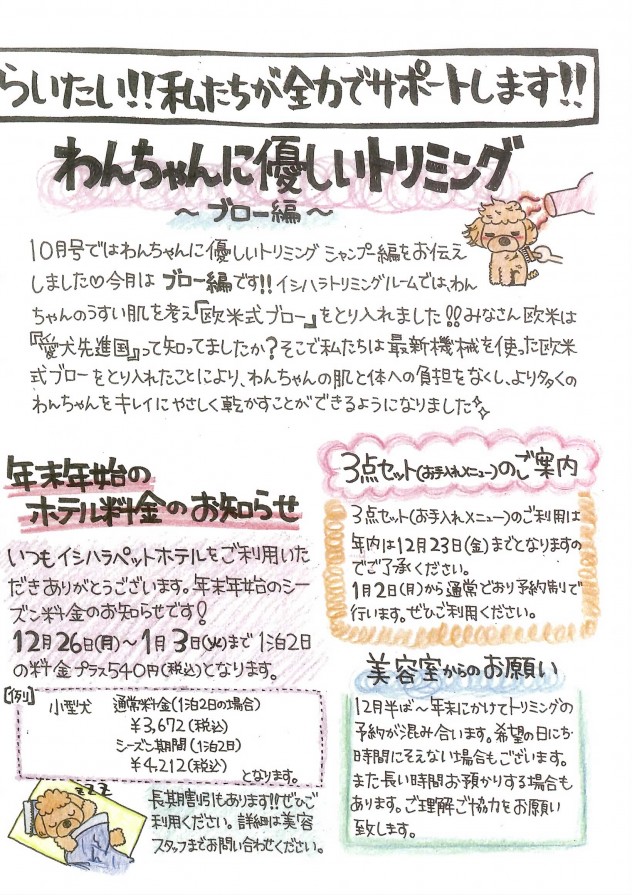 らいたい!!私たちが全力でサポートします!!
わんちゃんに優しいトリミング
～ブロー編～
10月号ではわんちゃんに優しいトリミング シャンプー編をお伝え
しました♡今月は ブロー編です!!イシハラトリミングルームでは、わん
ちゃんのうすい肌を考え『欧米式ブロー』をとり入れました!!みなさん欧米は
『愛犬先進国』って知ってましたか?そこで私たちは最新機械を使った欧米
式ブローをとり入れたことにより、わんちゃんの肌と体への負担をなくし、より多くの
わんちゃんをキレイにやさしく乾かすことができるようになりました
年末年始の
ホテル料金のお知らせ
いつもイシハラペットホテルをご利用いた
だきありがとうございます。年末年始のシー
ズン料金のお知らせです!
12月26日(月)～1月3日(火)まで1泊2日
の料金プラス540円(税込)となります。
[例]
小型犬 通常料金(1泊2日の場合)
¥3,672(税込)
シーズン期間(1泊2日)
¥4,212(税込)
となります。
zzz
長期割引もあります!!ぜひご
利用ください。詳細は美容
スタッフまでお問い合わせください。
3点セット(お手入れメニュー)のご案内
3点セット(お手入れメニュー)のご利用は
年内は12月23日(金)までとなりますの
でご了承ください。
1月2日(月)から通常どおり予約制で
行います。ぜひご利用ください。
美容室からのお願い
12月半ば～年末にかけてトリミングの
予約が混み合います。希望の日にち
時間にそえない場合もございます。
また長い時間お預かりする場合も
あります。ご理解ご協力をお願い
致します。